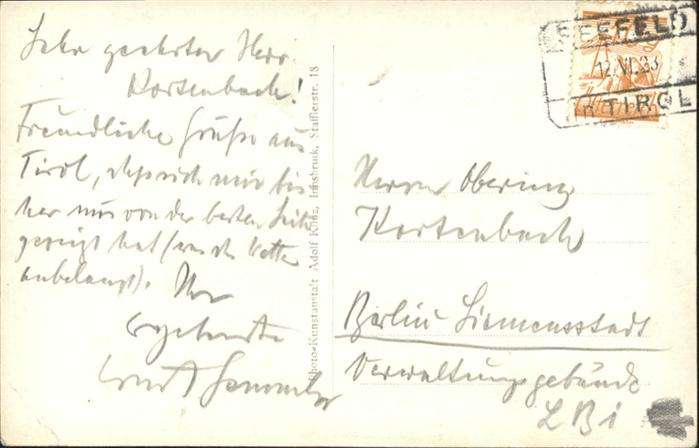 Sehr geehrter Herr
Kortenbach!
Freundliche Grüße aus
Tirol, daß sich mir bis
her nur von der besten Seite
gezeigt hat (was das Wetter
anbelangt). Ihr
ergebenster
Ernst
Photo-Kunstanstalt Adolf Künz, Innsbruck, Stafflerstr. 18
SEEFELD
12.VI.33
TIROL
Herrn Obering
Kortenbach
Berlin Siemensstadt
Verwaltungsgebäude